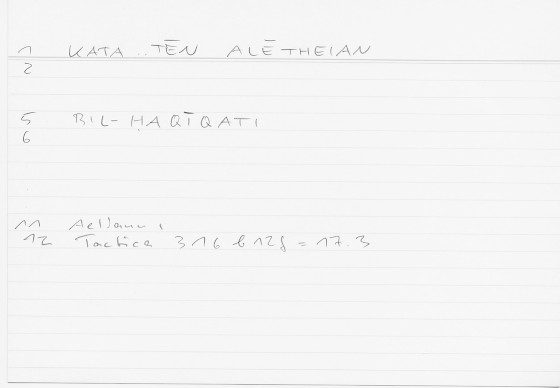 1 KATA .. TĒN ALĒTHEIAN
2
5 BIL-ḤAQĪQATI
6
11 Aeliani
12 Tactica 316 b 12f = 17.3